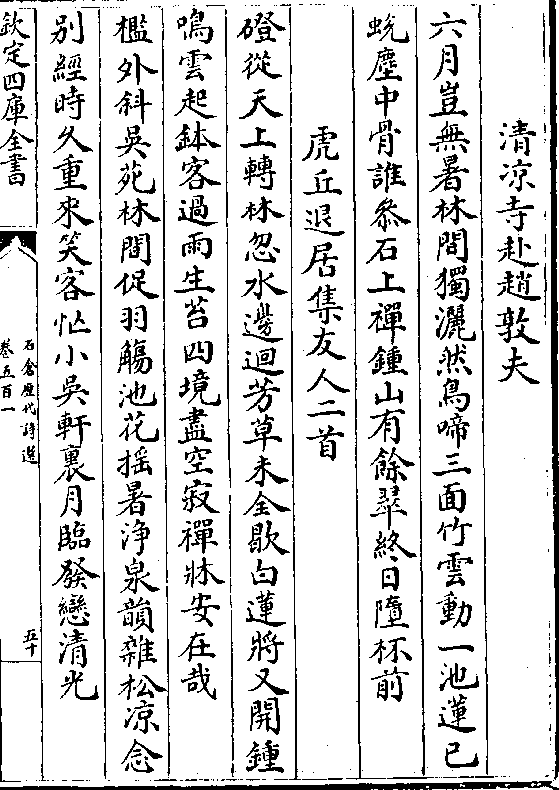 清凉寺赴趙敦夫
六月豈無暑林間獨灑然鳥啼三面竹雲動一池蓮已
蛻塵中骨誰叅石上禪鍾山有餘翠終日墮杯前
虎丘退居集友人二首
磴從天上轉林忽水邊迴芳草未全歇白蓮將又開鍾
鳴雲起鉢客過雨生苔四境盡空寂禪牀安在哉
檻外斜吳苑林間促羽觴池花揺暑浄泉韻雜松凉念
别經時久重來笑客忙小吳軒裏月臨發戀清光
欽定四庫全書
石倉歷代詩選
卷五百一
五十